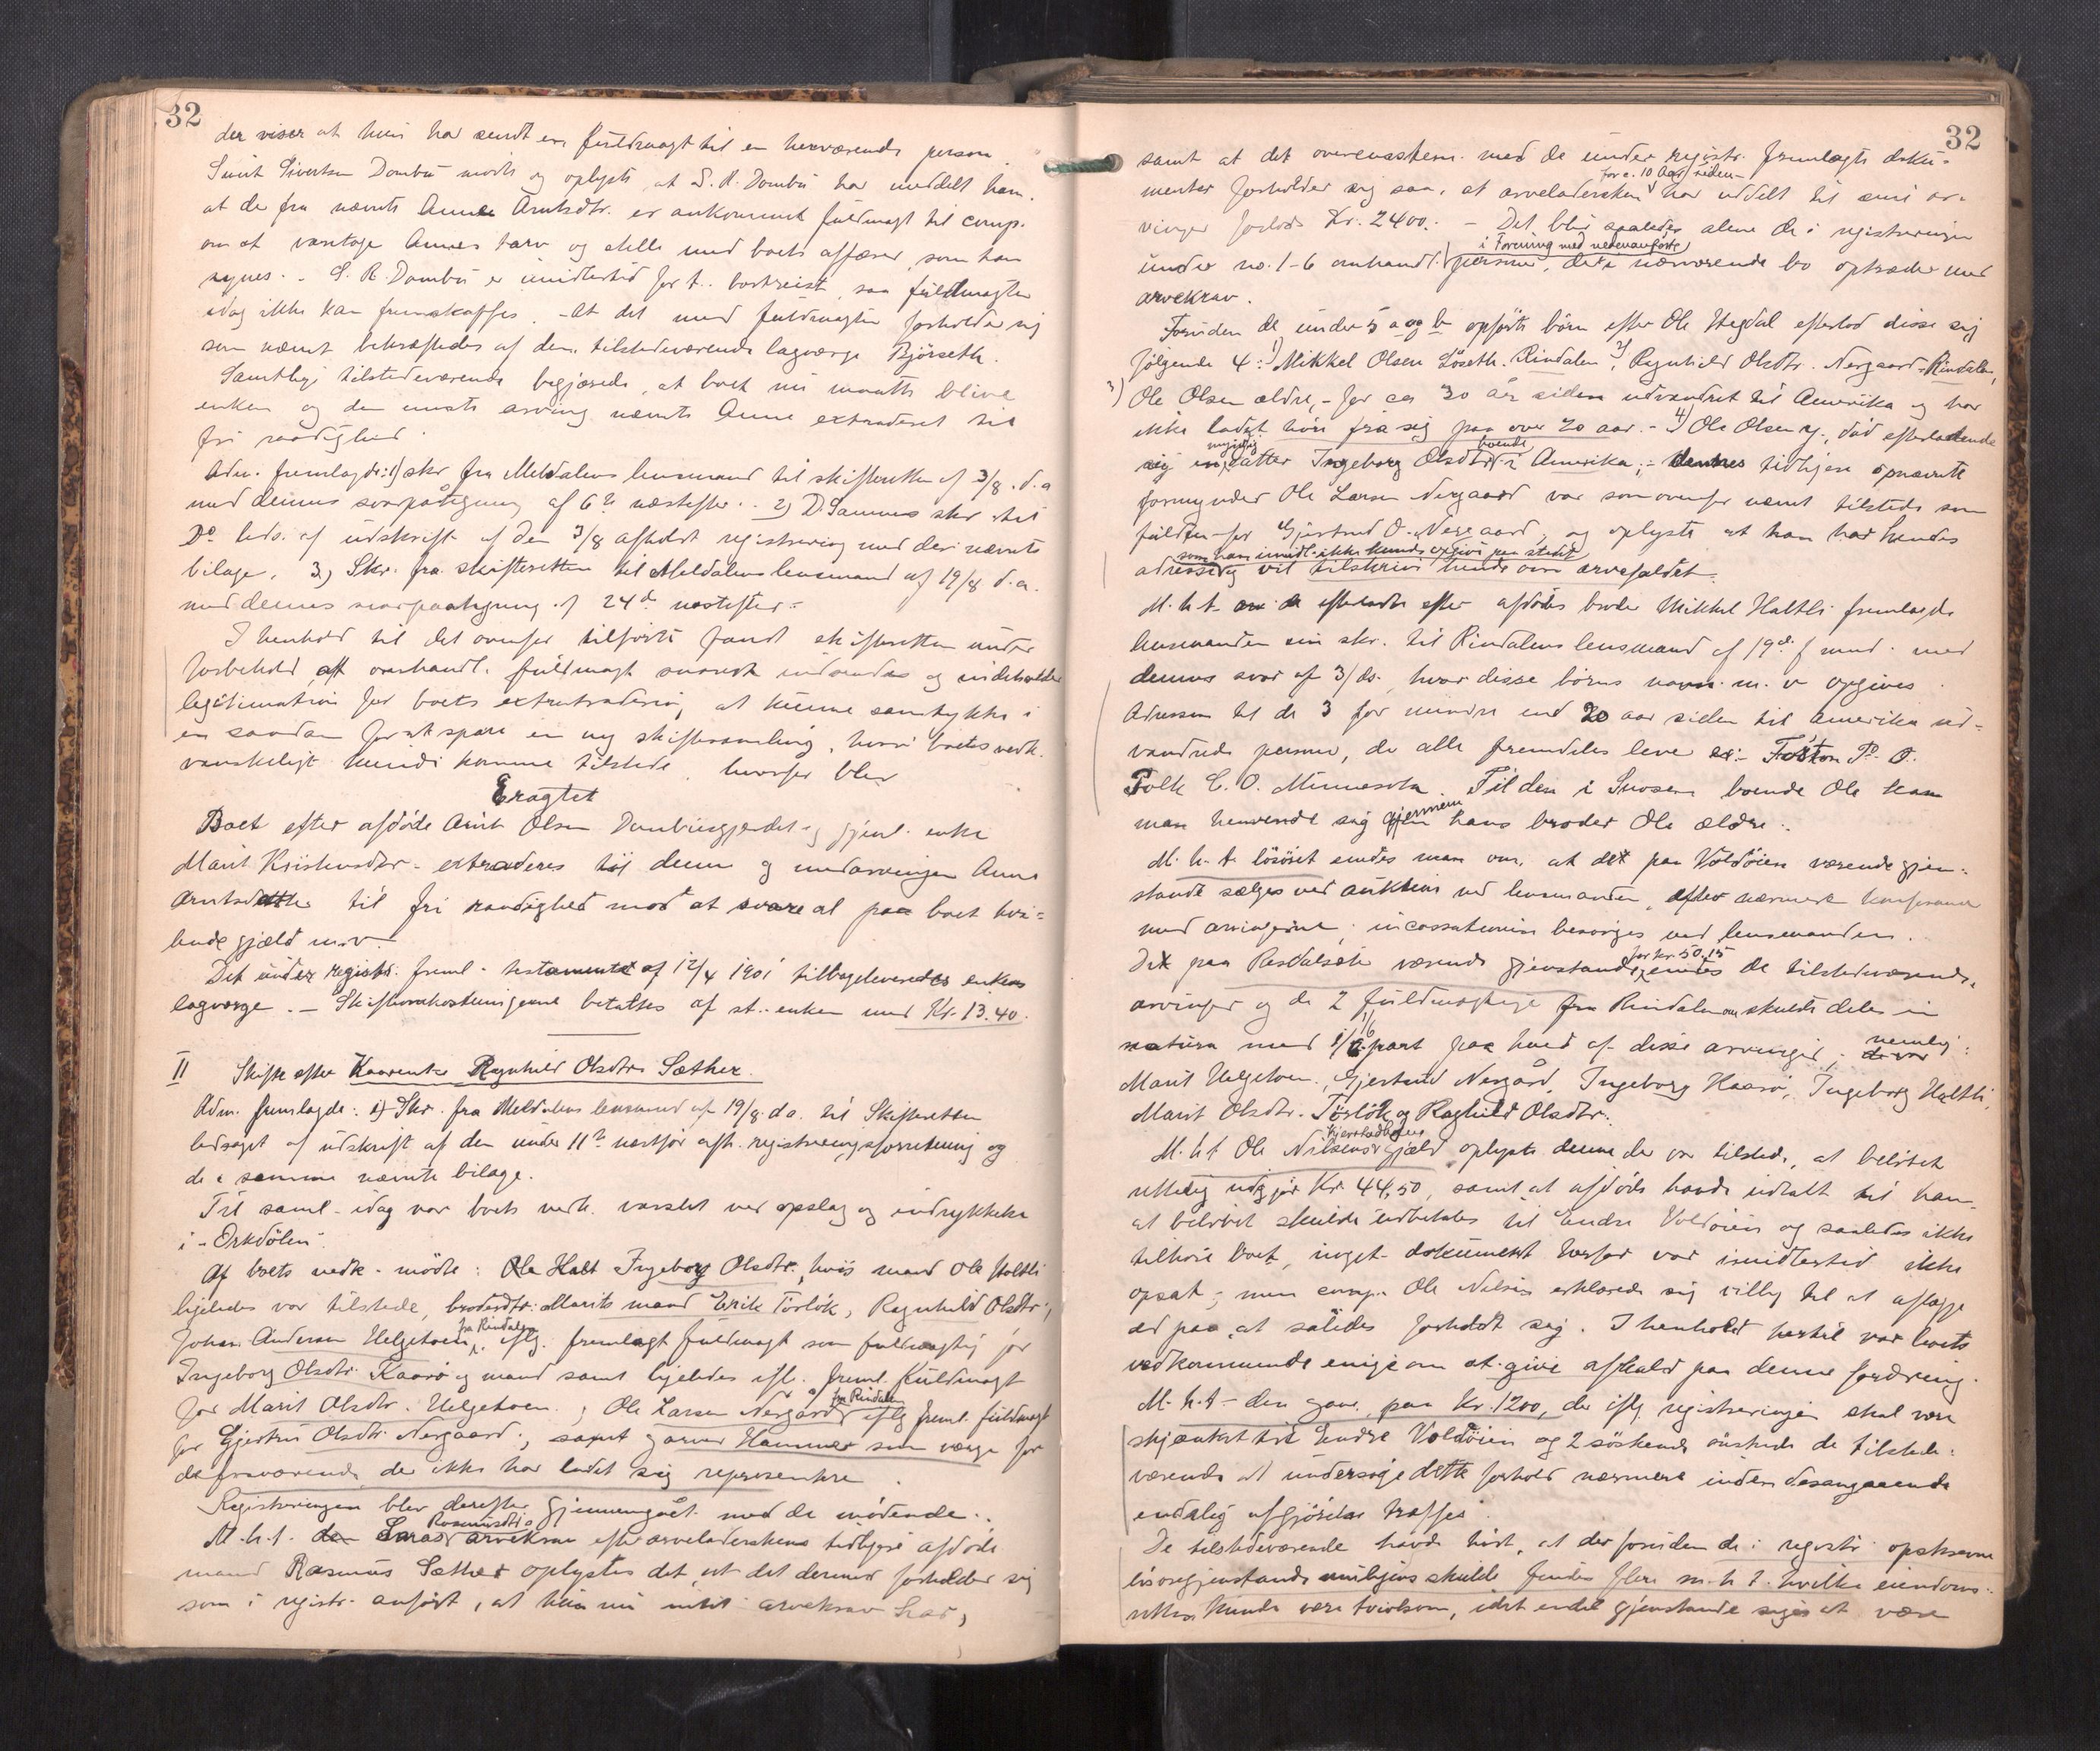 32
der viser at hun har sendt en fuldmagt til en herværende person.
Sivert Sivertsen Dombu mødte og oplyste, at S. R. Dombu har meddelt ham,
at der fra nævnte Anne Arntsdtr. er ankommet fuldmagt til comp.
om at varetage Annes tarv og stelle med boets affærer, som han
synes. - S. R. Dombu er imidlertid for t. bortreist, saa fuldmagten
idag ikke kan fremskaffes. - At det med fuldmagten forholder sig
som nævnt bekræftedes af den tilstedeværende lagværge Bjørseth.
Samtlige tilstedeværende begjærede, at boet nu maatte blive
enken og den eneste arving nævnte Anne extraderet til
fri raadighed.
Adm. fremlagde: 1) skr fra Meldalens lensmand til skifteretten af 3/8 d.a
med dennes svarpåtegning af 6te næstefter. 2) D. Sammes skr til
Do leds. af udskrift af den 3/8 afholdt registrering med deri nævnte
bilage. 3) Skr. fra skifteretten til Meldalens lensmand af 19/8 d.a.
med dennes svarpaategning af 24de næstefter. -
I henhold til det ovenfor tilførte fandt skifteretten under
forbehold af omhandl. fuldmagt snarest indsendes og indeholder
legitimation for boets extradering, at kunne samtykke i
en saadan for at spare en ny skiftesamling, hvori boets vedk.
vanskeligt kunde komme tilstede, hvorfor blev
Eragtet
Boet efter afdøde Arnt Olsen Dombusgjerdet og gjenl. enke
Marit Kristensdtr. extraderes til denne og medarvingen Anne
Arntsdatter til fri raadighed mod at svare al paa boet hvi-
lende gjæld m.v.
Det under registr. freml. testamente af 12/4 1901 tilbageleveredes enkens
lagværge. - Skifteomkostningerne betaltes af st. enken med Kr. 13.40.
II Skifte efter Kaarenke Ragnhild Olsdtr Sæther.
Adm. fremlagde: 1) Skr. fra Meldalens lensmand af 19/8 d.a. til Skifteretten
ledsaget af udskrift af den under 11te næstfør afh. registreringsforretning og
de i samme nævnte bilage.
Til saml. idag var boets vedk. varslet ved opslag og indrykkelse
i "Orkdølen".
Af boets vedk. mødte: Ole Halt Ingeborg Olsdtr., hvis mand Ole Haltli
ligeledes var tilstede, broderdtr. Marits mand Erik Törlök, Ragnhild Olsdtr.,
fra Rindalen
Johan Andersen Helgetoen, iflg. fremlagt fuldmagt som fuldmægtig for
Ingeborg Olsdtr. Kaarø og mand samt ligeledes ifl. freml. fuldmagt
fra Rindalen
for Marit Olsdtr. Helgetoen; Ole Larsen Nergaard iflg freml. fuldmagt
for Gjertrud Olsdtr. Nergaard; samt garver Hammer som værge for
de fraværende, der ikke har ladet sig representere.
Registreringen blev derefter gjennemgået med de mødende.
Rasmusdtrs
M.h.t. den Saras arvekrav efter arveladerskens tidligere afdøde
mand Rasmus Sæther oplystes det, at det dermed forholder sig
som i registr. anført, at hun nu intet arvekrav har,
32
samt at det overensstem. med de under registr. fremlagte doku-
for c. 10 Aar siden
menter forholder sig saa, at arveladersken har uddelt til sine ar-
vinger forlods Kr. 2400. - Det blir saaledes alene de i registreringen
i Forening med nedenanførte
under no. 1-6 omhandl. personer, der i nærværende bo optræder med
arvekrav.
Foruden de under 5 a og b opførte børn efter Ole Hegdal efterlod disse sig
følgende 4: 1) Mikkel Olsen Löseth. Rindalen 2) Ragnhild Olsdtr. Nergaard - Rindalen,
3) Ole Olsen ældre, - for ca 30 år siden udvandret til Amerika og har
ikke ladet höre fra sig paa over 20 aar. - 4) Ole Olsen y., död efterladende
myndig boende
sig en datter Ingeborg Olsdtr i Amerika; - dennes tidligere opnævnte
formynder Ole Larsen Nergaard var som ovenfor nævnt tilstede som
fuldm. for Gjertrud O. Nergaard, og oplyste at han har hendes
som han imidl. ikke kunde opgive paa stedet
adresse og vil tilskrive hende om arvefaldet.
M.h.t. de efterladte efter afdødes broder Mikkel Haltli fremlagde
lensmanden sin skr. til Rindalens lensmand af 19de f. mnd. med
dennes svar af 3/ds., hvor disse börns navn m.v. opgives.
Adressen til de 3 for mindre end 20 aar siden til Amerika ud-
vandrede personer, de alle fremdeles leve er: Fosston P. O.
Polk C. O. Minnesota. Til den i Snosen boende Ole kan
man henvende sig gjennem hans broder Ole ældre.
M.h.t. lösöret enedes man om, at det paa Voldöien værende gjen-
stande sælges ved auktion ved lensmanden, efter nærmere konferance
med arvingerne; incassationen besørges ved lensmanden.
for kr. 50.15
Det paa Resdalsæter værende gjenstande, enedes de tilstedeværende
arvinger og de 2 fuldmægtige fra Rindalen om skulde deles in
natura med 1/6 part paa hver af disse arvinger, nemlig:
Marit Helgetoen, Gjertrud Nergård, Ingeborg Kaarø, Ingeborg Haltli,
Marit Olsdtr. Törlök og Ragnhild Olsdtr.
M.h.t. Ole Nilsens gjæld oplyste denne der var tilstede, at belöbet
rettelig udgjør Kr. 44,50, samt at afdøde havde udtalt til ham
at belöbet skulde udbetales til Endre Voldöien og saaledes ikke
tilhøre boet, noget dokument herfor var imidlertid ikke
opsat; men comp. Ole Nilsen erklærede sig villig til at aflægge
ed paa, at således forholdt sig. I henhold hertil var boets
vedkommende enige om at give afkald paa denne fordring.
M.h.t. den gave, paa Kr. 1200, der iflg. registreringen skal være
skjænket til Endre Voldöien og 2 söskende önskede de tilstede-
værende at undersøge dette forhold nærmere inden desangaaende
endelig afgjörelse træffes.
De tilstedeværende havde hört, at der foruden de i registr. opskrevne
lösoregjenstande muligens skulde findes flere m.h.t. hvilke eiendoms-
retten kunde være tvivlsom, idet endel gjenstande siges at være